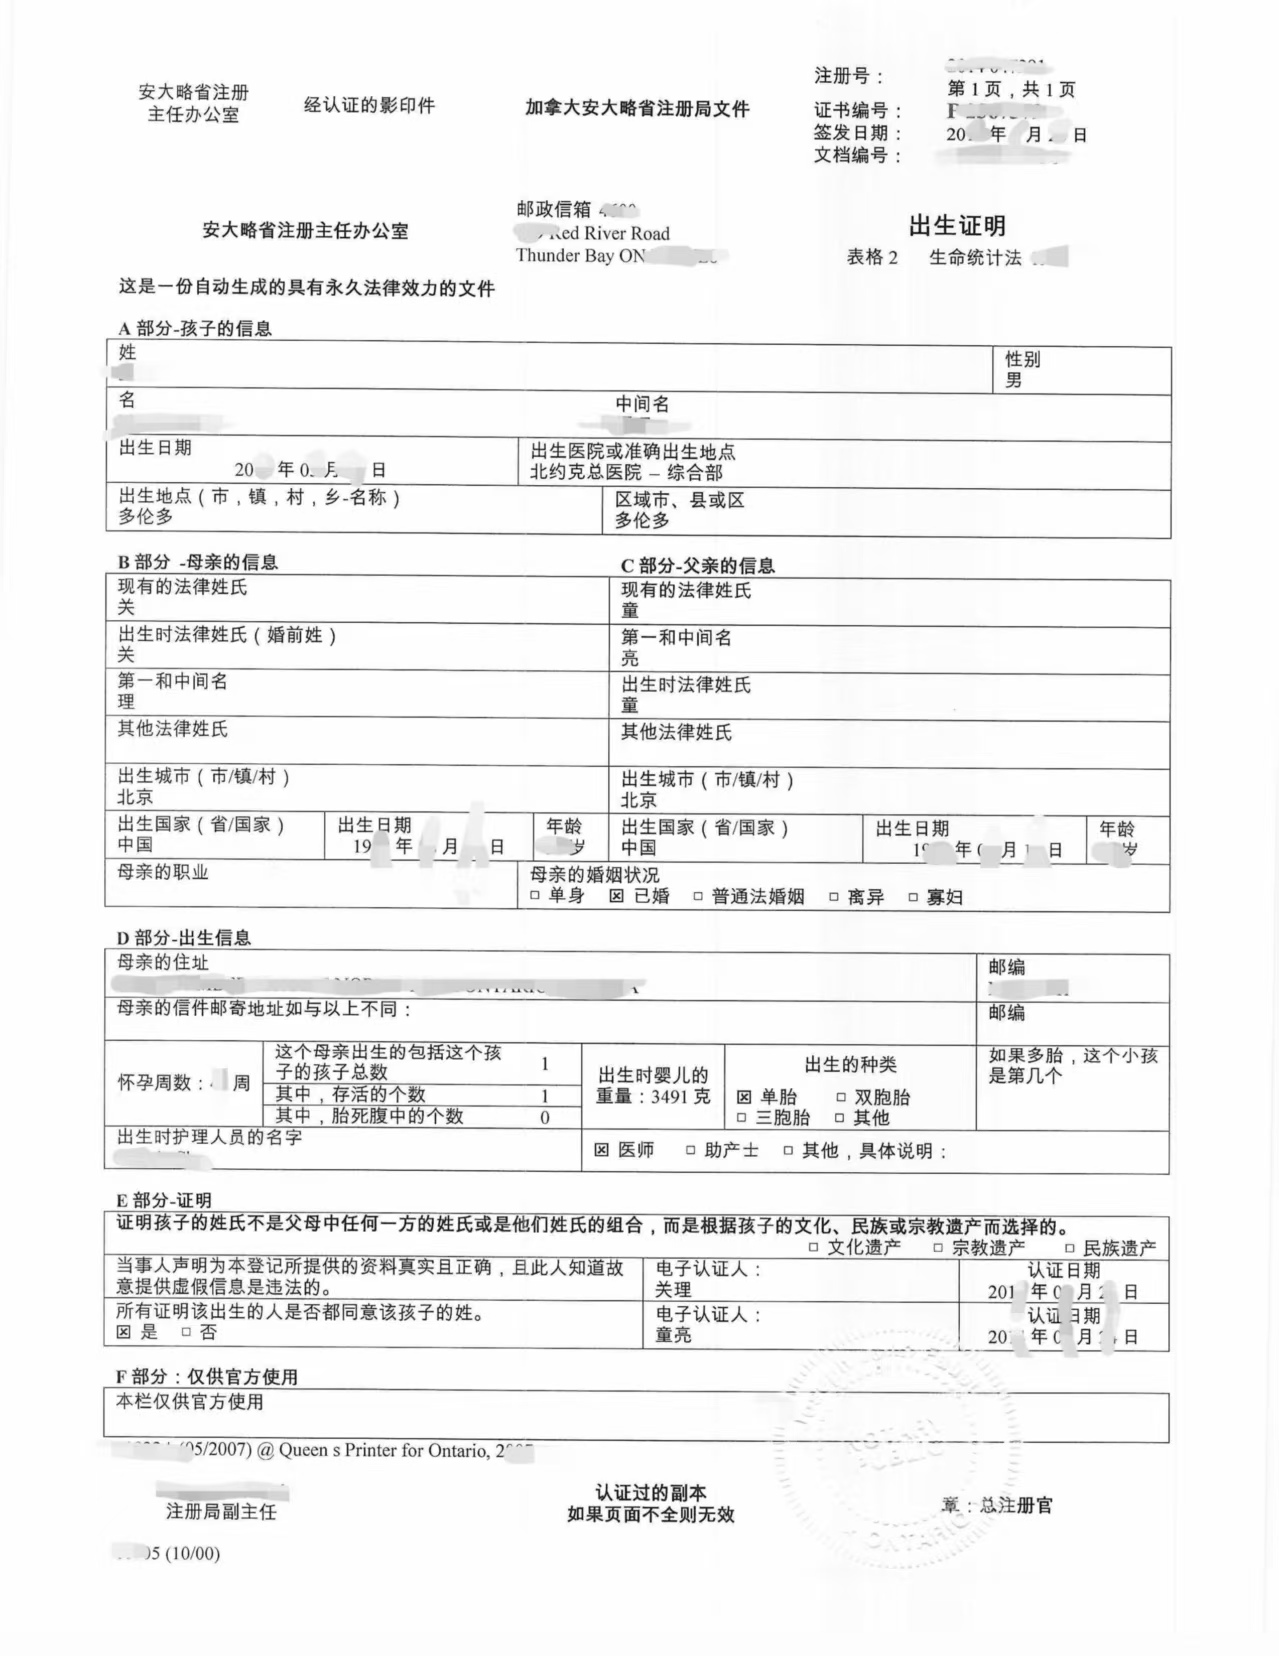 安大略省注册
主任办公室
经认证的影印件
加拿大安大略省注册局文件
注册号：
第 1 页，共 1 页
证书编号：
签发日期： 20 年 月 日
文档编号：
安大略省注册主任办公室
邮政信箱
Red River Road
Thunder Bay ON
出生证明
表格 2 生命统计法
这是一份自动生成的具有永久法律效力的文件
A 部分-孩子的信息
姓
性别
男
名
中间名
出生日期
20 年 0 月 日
出生医院或准确出生地点
北约克总医院 – 综合部
出生地点（市，镇，村，乡-名称）
多伦多
区域市、县或区
多伦多
B 部分 -母亲的信息
现有的法律姓氏
关
出生时法律姓氏（婚前姓）
关
第一和中间名
理
其他法律姓氏
出生城市（市/镇/村）
北京
出生国家（省/国家）
中国
出生日期
19 年 月 日
年龄
岁
C 部分-父亲的信息
现有的法律姓氏
童
第一和中间名
亮
出生时法律姓氏
童
其他法律姓氏
出生城市（市/镇/村）
北京
出生国家（省/国家）
中国
出生日期
19 年 月 日
年龄
岁
母亲的职业
母亲的婚姻状况
□ 单身 ☒ 已婚 □ 普通法婚姻 □ 离异 □ 寡妇
D 部分-出生信息
母亲的住址
邮编
母亲的信件邮寄地址如与以上不同：
邮编
怀孕周数： 周
这个母亲出生的包括这个孩
子的孩子总数 1
其中，存活的个数 1
其中，胎死腹中的个数 0
出生时婴儿的
重量：3491 克
出生的种类
☒ 单胎 □ 双胞胎
□ 三胞胎 □ 其他
如果多胎，这个小孩
是第几个
出生时护理人员的名字
☒ 医师 □ 助产士 □ 其他，具体说明：
E 部分-证明
证明孩子的姓氏不是父母中任何一方的姓氏或是他们姓氏的组合，而是根据孩子的文化、民族或宗教遗产而选择的。
□ 文化遗产 □ 宗教遗产 □ 民族遗产
当事人声明为本登记所提供的资料真实且正确，且此人知道故
意提供虚假信息是违法的。
电子认证人：
关理
认证日期
201 年 0 月 日
所有证明该出生的人是否都同意该孩子的姓。
☒ 是 □ 否
电子认证人：
童亮
认证日期
20 年 0 月 日
F 部分：仅供官方使用
本栏仅供官方使用
(05/2007) @ Queen s Printer for Ontario, 2
注册局副主任
认证过的副本
如果页面不全则无效
章：总注册官
ONTARIO
05 (10/00)